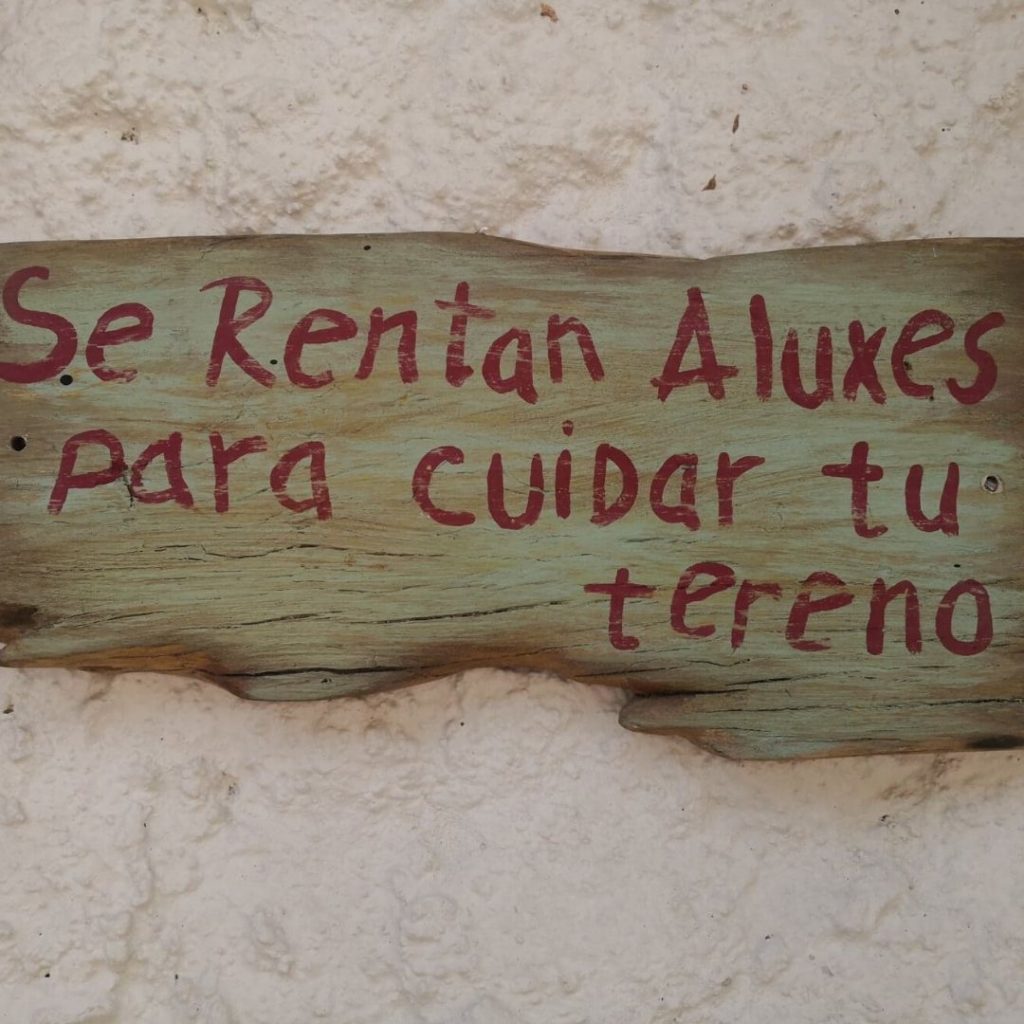 Se Rentan Aluxes
para cuidar tu
tereno